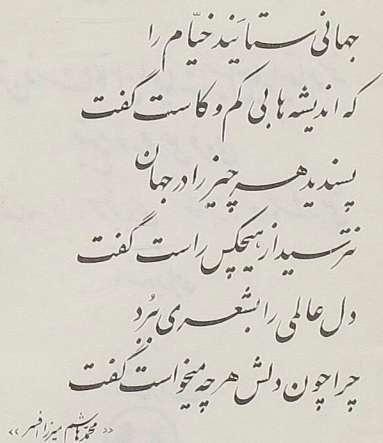 جهانی ستایند خیّام را
که اندیشه ها بی کم و کاست گفت
پسندید هر چیز را در جهان
نترسید از هیچکس راست گفت
دل عالمی را بشعری بُرد
چرا چون دلش هر چه میخواست گفت
«محمد هاشم میرزا افسر»